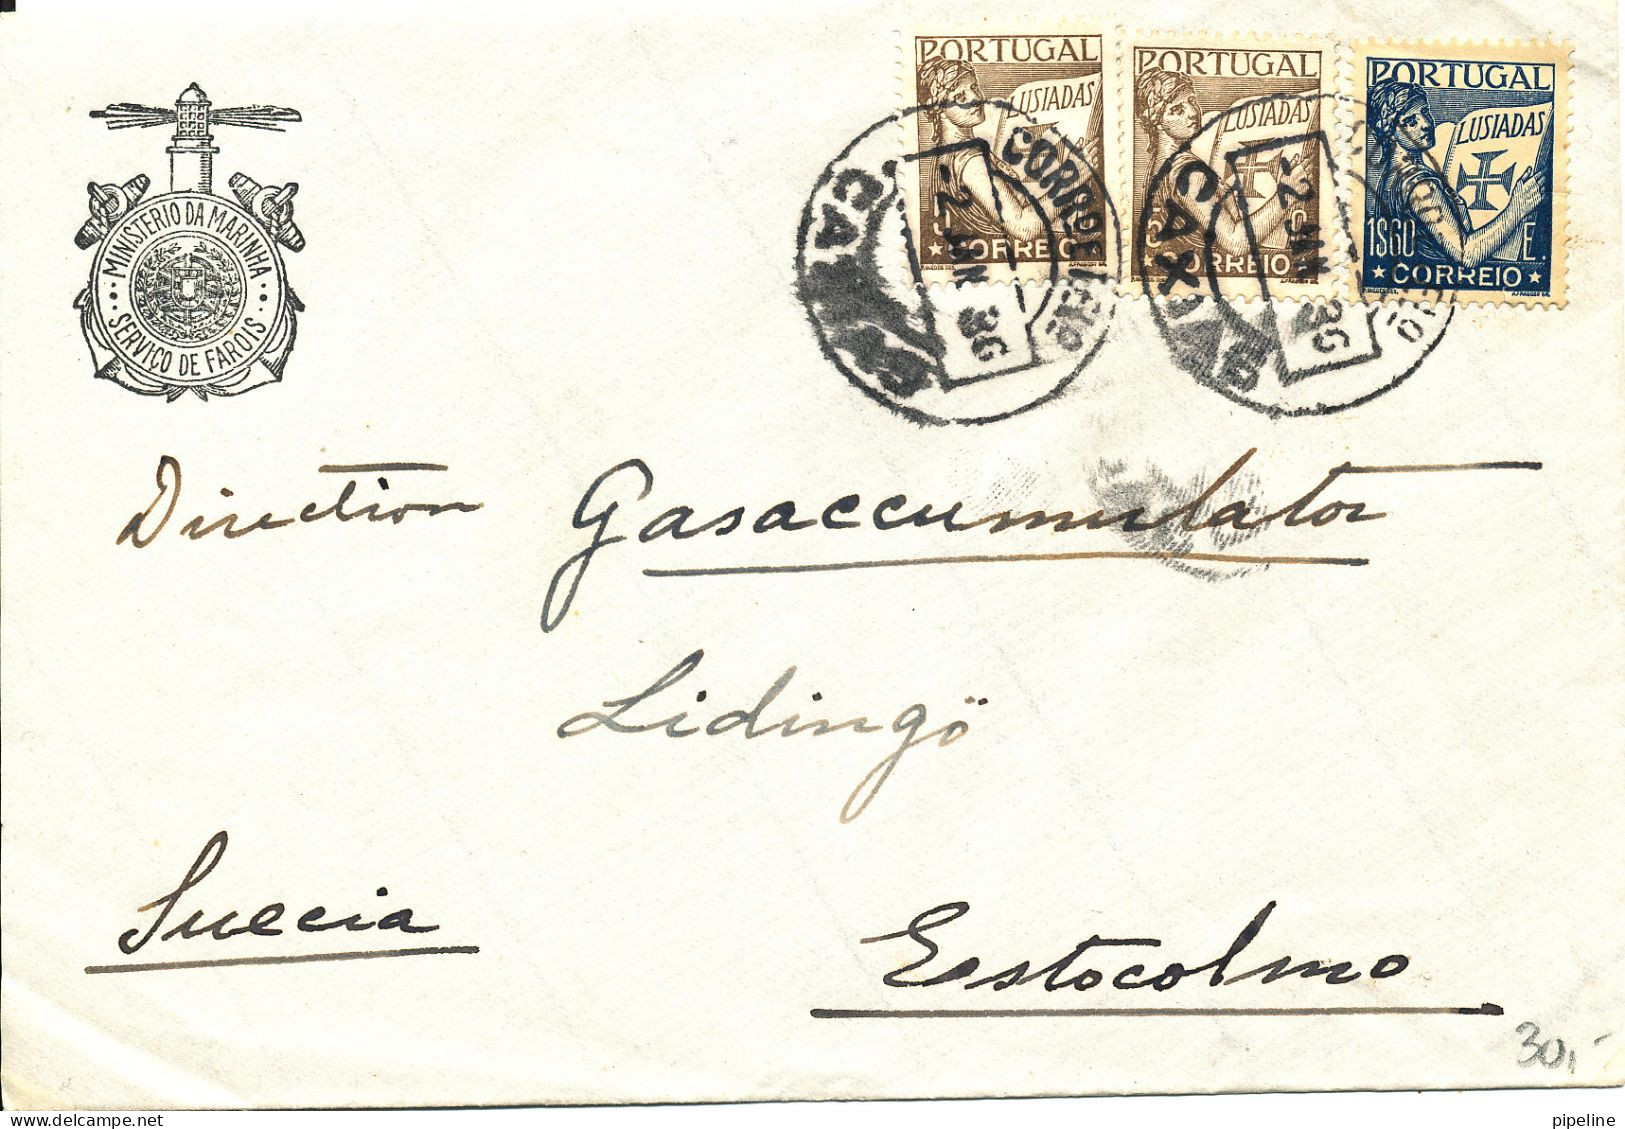 MINISTERIO DA MARINHA
SERVIÇO DE FAROIS
PORTUGAL
LUSIADAS
CORREIO
PORTUGAL
LUSIADAS
CORREIO
PORTUGAL
LUSIADAS
1$60 E.
CORREIO
-2 JAN 36
CAXIAS
-2 JAN 36
Direction Gasaccumulator
Lidingö
Suecia Estocolmo
30,-
pipeline